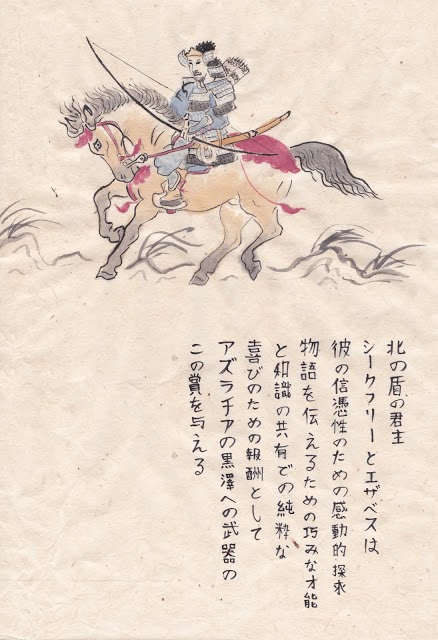 北の盾の君主
シークフリーとエザベスは
彼の信憑性のための感動的探求
物語を伝えるための巧みな才能
と知識の共有での純粋な
喜びのための報酬として
アズラチアの黒澤への武器の
この賞を与える